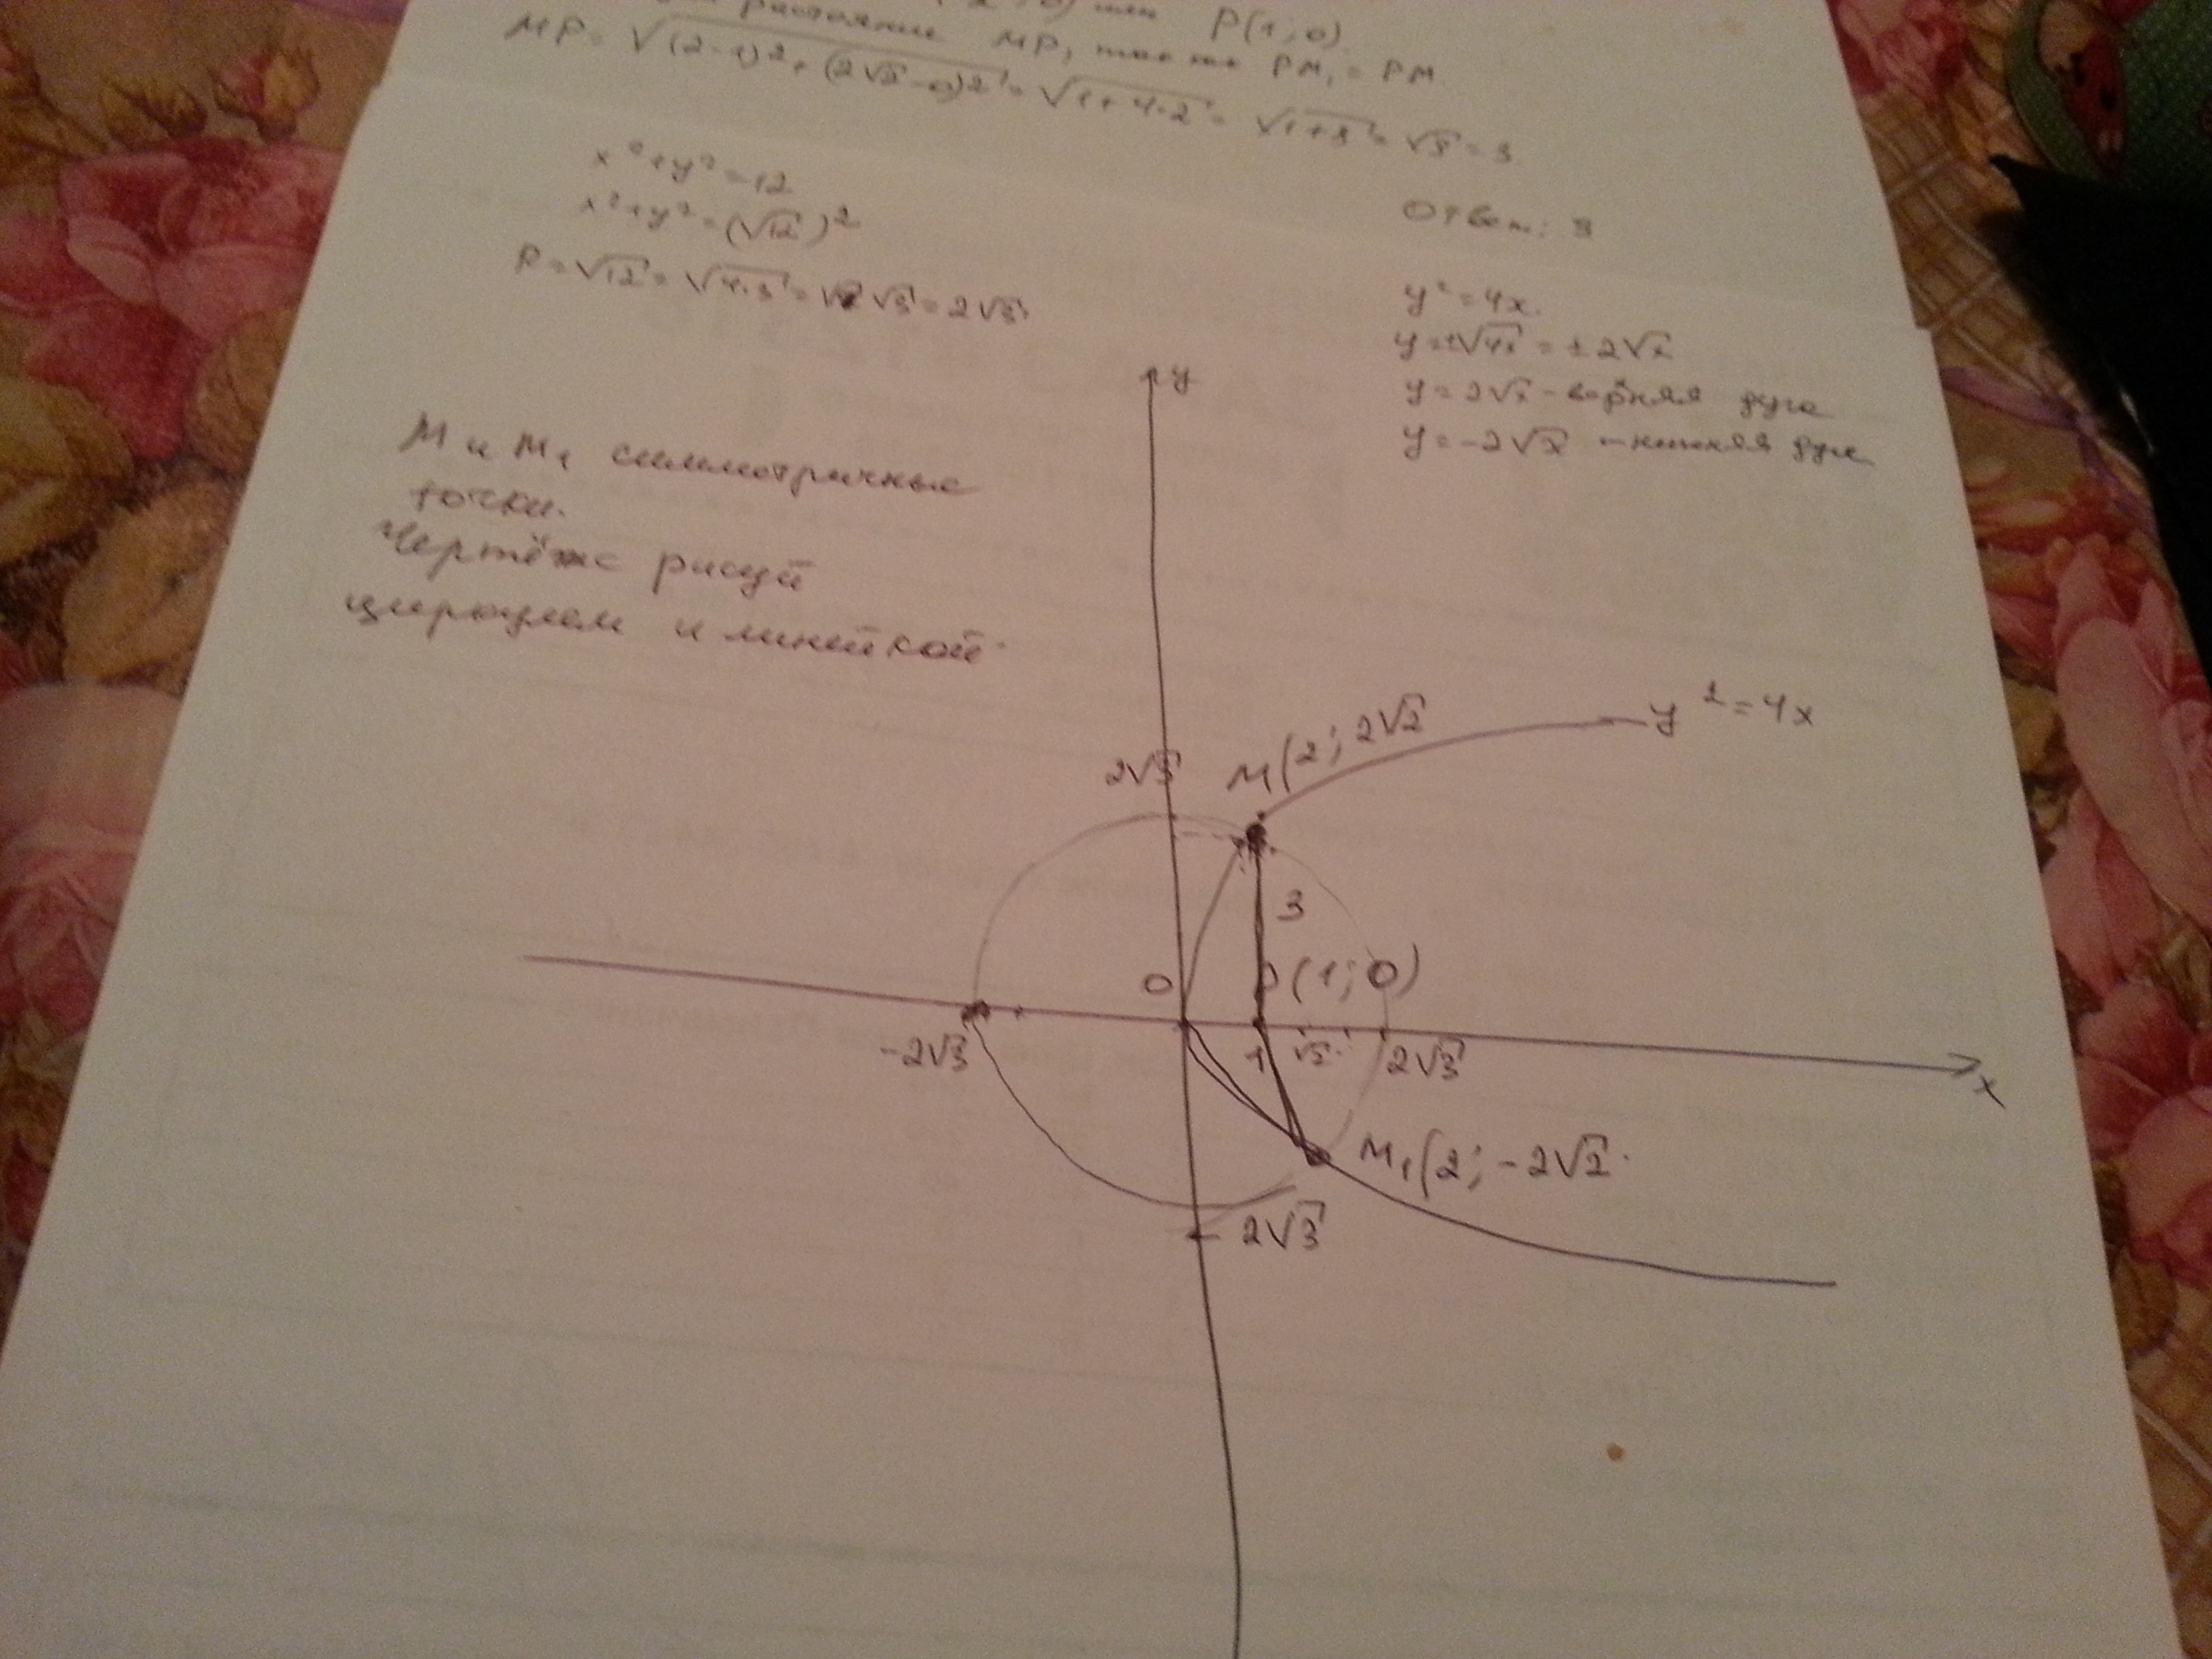 ; 0) или P(1; 0).
расстояние MP, так как PM₁ = PM.
MP = √((2-1)² + (2√2-0)²) = √(1+4·2) = √(1+8) = √9 = 3
x²+y²=12
x²+y²=(√12)²
R=√12=√(4·3)=√4 √3=2√3
Ответ: 3
y²=4x.
y=±√4x = ±2√x
y=2√x - верхняя дуга
y=-2√x - нижняя дуга
M и M₁ симметричные
точки.
Чертёж рисуй
циркулем и линейкой.
y
y²=4x
M(2; 2√2
2√3
3
0
(1; 0)
-2√3
1
2√3
x
M₁(2; -2√2.
-2√3